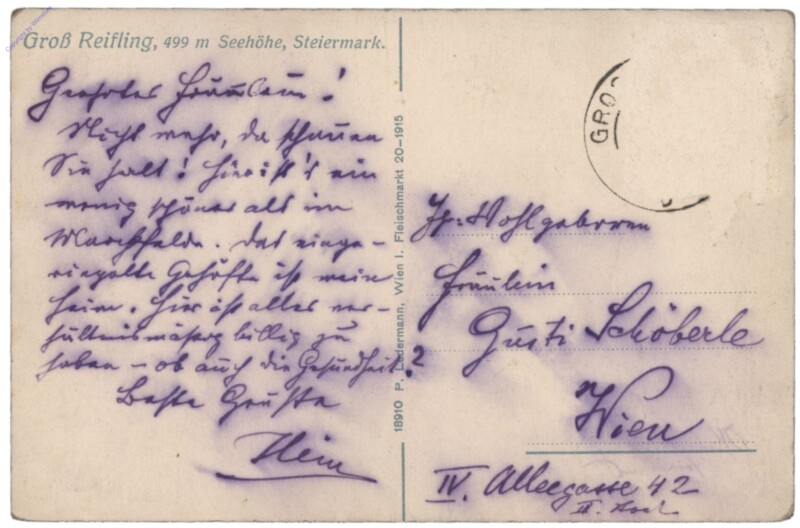 Groß Reifling, 499 m Seehöhe, Steiermark.
Geehrtes Fräulein!
Nicht wahr, da schauen
Sie halt! Hier ist's ein
wenig schöner als im
Marchfelde. Das einge-
ringelte Gehöfte ist mein
Heim. Hier ist alles ver-
hältnismäßig billig zu
haben – ob auch die Gesundheit?
Beste Grüße
18910 P. Ledermann, Wien I. Fleischmarkt 20-1915
GRO
Wohlgeboren
Fräulein
Gusti Schöberle
Wien
IV. Alleegasse 42
II. Stock